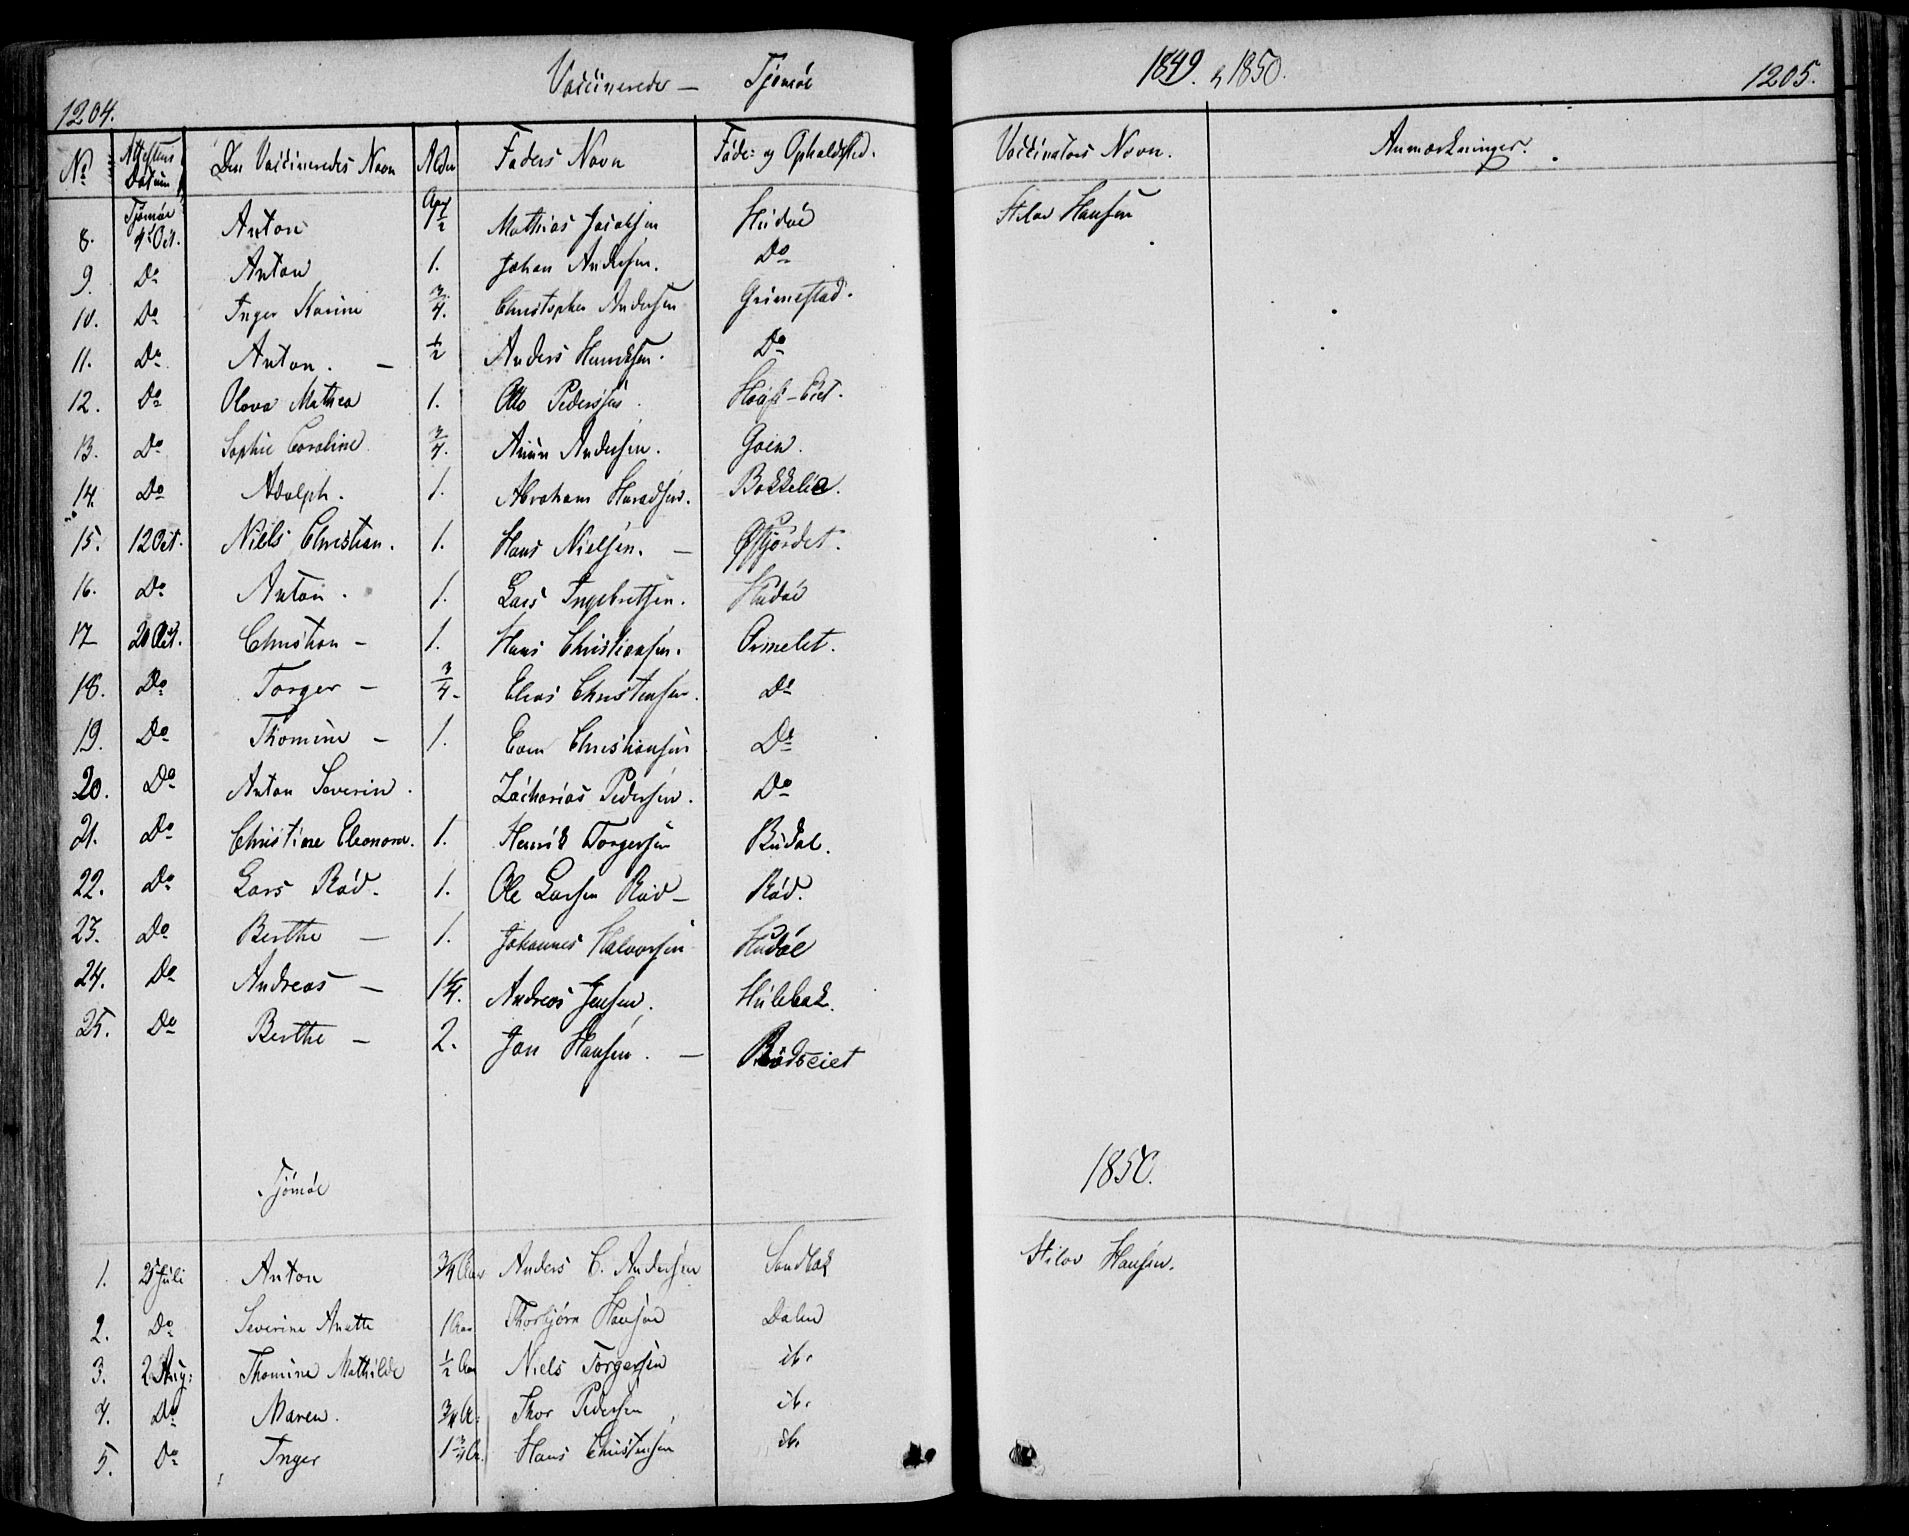 Vaccinerede — Tjømøe 1849. & 1850.
1204. 1205.
No Attestens Datum Den Vaccineredes Navn Alder Faders Navn Føde- og Opholdsted. Vaccinators Navn. Anmærkninger.
8. Tjømøe 4 Oct. Anton 1/2 Mathias Jacobsen Hudøe Stilov Hansen
9. Do Anton 1. Johan Andersen. Do
10. Do Inger Karine 3/4. Christopher Andersen Grimestad.
11. Do Anton. — 1/2 Anders Henriksen. Do
12. Do Olava Mathea 1. Otto Pedersen
13. Do Sophie Caroline 3/4. Andersen. Goen.
14. Do Adolph. 1. Abraham Bekkelie.
15. 12 Oct. Niels Christian. 1. Hans Nielsen. —
16. Do Anton. 1. Lars Ingebretsen. Hudøe
17 20 Oct. Christian — 1. Hans Christiansen. Ormelet.
18. Do Torger — 3/4. Elias Christensen. Do
19. Do Thomine — 1. Even Christiansen Do
20. Do Anton Severin. Zacharias Pedersen. Do
21. Do Christine Eleonora. 1. Henrik Torgersen Budal.
22. Do Lars Rød. 1. Ole Larsen Rød — Rød.
23. Do Berthe — 1. Johannes Halvorsen Hudøe
24. Do Andreas — 1 1/4. Andreas Jensen. Hulebak.
25. Do Berthe — 2. Jan Hansen. — Rødseiet
Tjømøe 1850.
1. 25 Juli Anton 3/4 Aar Anders C. Andersen Sandbæk Stilov Hansen.
2. Do Severine Anette 1 Aar Thorbjørn Hansen Dalen
3. 2 Aug: Thomine Mathilde 1/2 Aar Niels Torgersen ib.
4. Do Maren. 3/4 A. Thor Pedersen ib.
5. Do Inger 1 3/4 A. Hans Christensen ib.